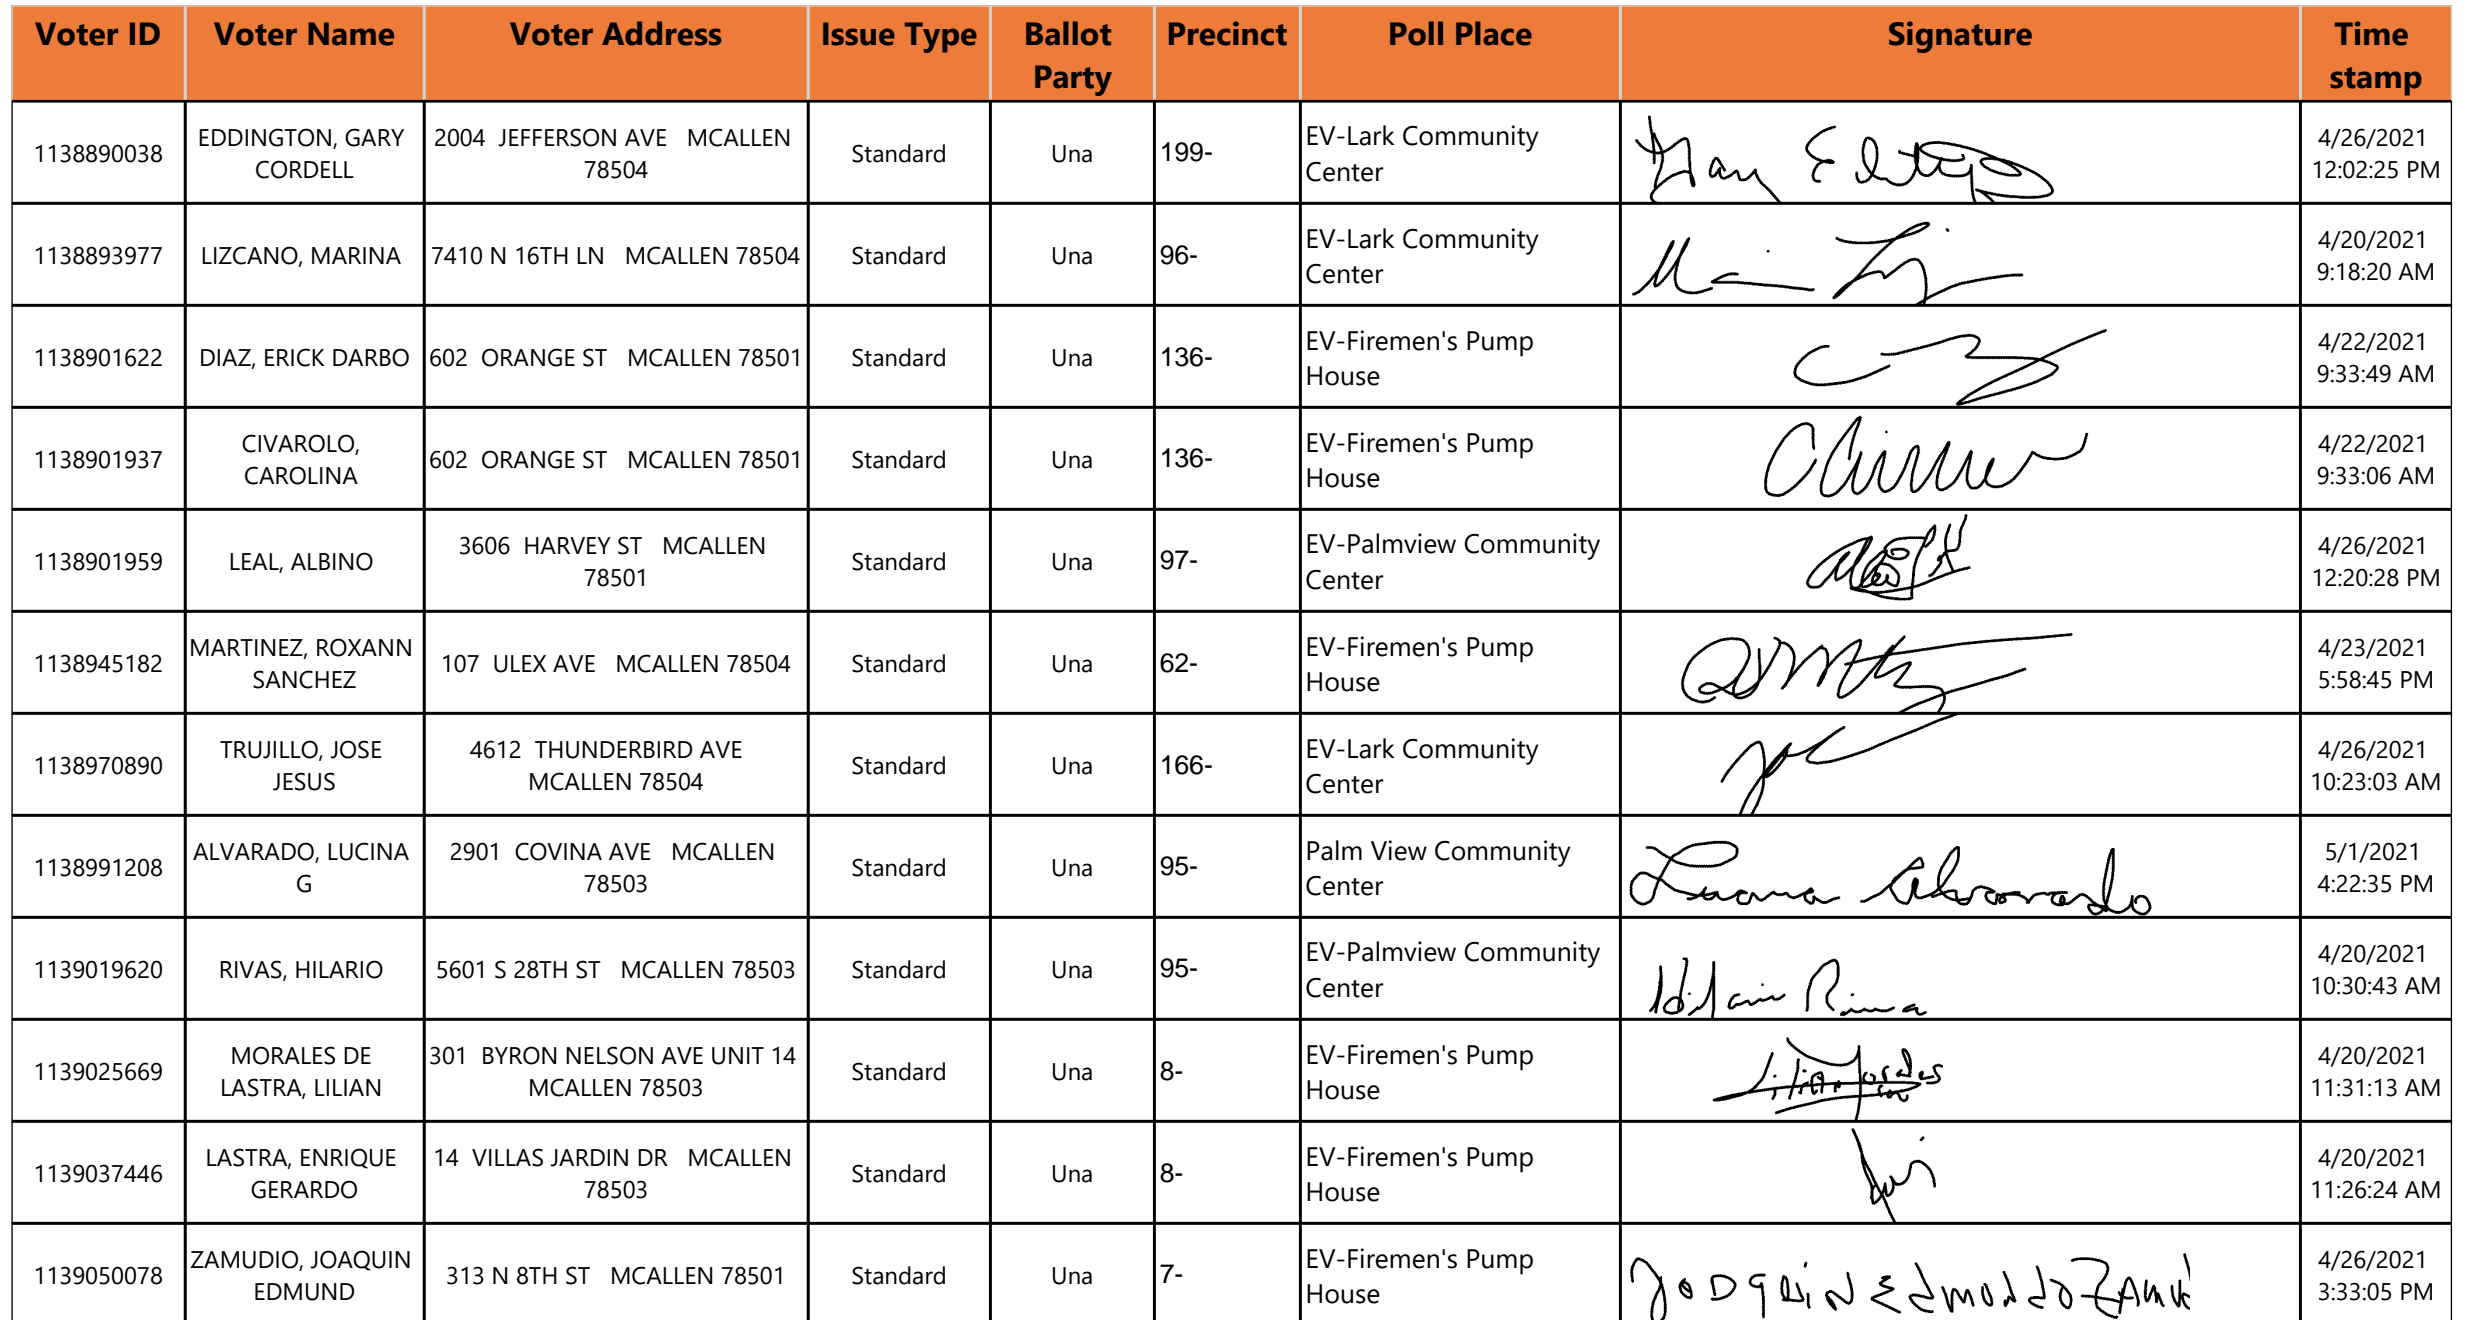 Voter ID Voter Name Voter Address Issue Type Ballot Party Precinct Poll Place Signature Time stamp
1138890038 EDDINGTON, GARY CORDELL 2004 JEFFERSON AVE MCALLEN 78504 Standard Una 199- EV-Lark Community Center Gary 4/26/2021 12:02:25 PM
1138893977 LIZCANO, MARINA 7410 N 16TH LN MCALLEN 78504 Standard Una 96- EV-Lark Community Center 4/20/2021 9:18:20 AM
1138901622 DIAZ, ERICK DARBO 602 ORANGE ST MCALLEN 78501 Standard Una 136- EV-Firemen's Pump House 4/22/2021 9:33:49 AM
1138901937 CIVAROLO, CAROLINA 602 ORANGE ST MCALLEN 78501 Standard Una 136- EV-Firemen's Pump House 4/22/2021 9:33:06 AM
1138901959 LEAL, ALBINO 3606 HARVEY ST MCALLEN 78501 Standard Una 97- EV-Palmview Community Center 4/26/2021 12:20:28 PM
1138945182 MARTINEZ, ROXANN SANCHEZ 107 ULEX AVE MCALLEN 78504 Standard Una 62- EV-Firemen's Pump House 4/23/2021 5:58:45 PM
1138970890 TRUJILLO, JOSE JESUS 4612 THUNDERBIRD AVE MCALLEN 78504 Standard Una 166- EV-Lark Community Center 4/26/2021 10:23:03 AM
1138991208 ALVARADO, LUCINA G 2901 COVINA AVE MCALLEN 78503 Standard Una 95- Palm View Community Center Lucina Alvarado 5/1/2021 4:22:35 PM
1139019620 RIVAS, HILARIO 5601 S 28TH ST MCALLEN 78503 Standard Una 95- EV-Palmview Community Center Hilario Rivas 4/20/2021 10:30:43 AM
1139025669 MORALES DE LASTRA, LILIAN 301 BYRON NELSON AVE UNIT 14 MCALLEN 78503 Standard Una 8- EV-Firemen's Pump House 4/20/2021 11:31:13 AM
1139037446 LASTRA, ENRIQUE GERARDO 14 VILLAS JARDIN DR MCALLEN 78503 Standard Una 8- EV-Firemen's Pump House 4/20/2021 11:26:24 AM
1139050078 ZAMUDIO, JOAQUIN EDMUND 313 N 8TH ST MCALLEN 78501 Standard Una 7- EV-Firemen's Pump House JOAQUIN Edmundo ZAMU 4/26/2021 3:33:05 PM